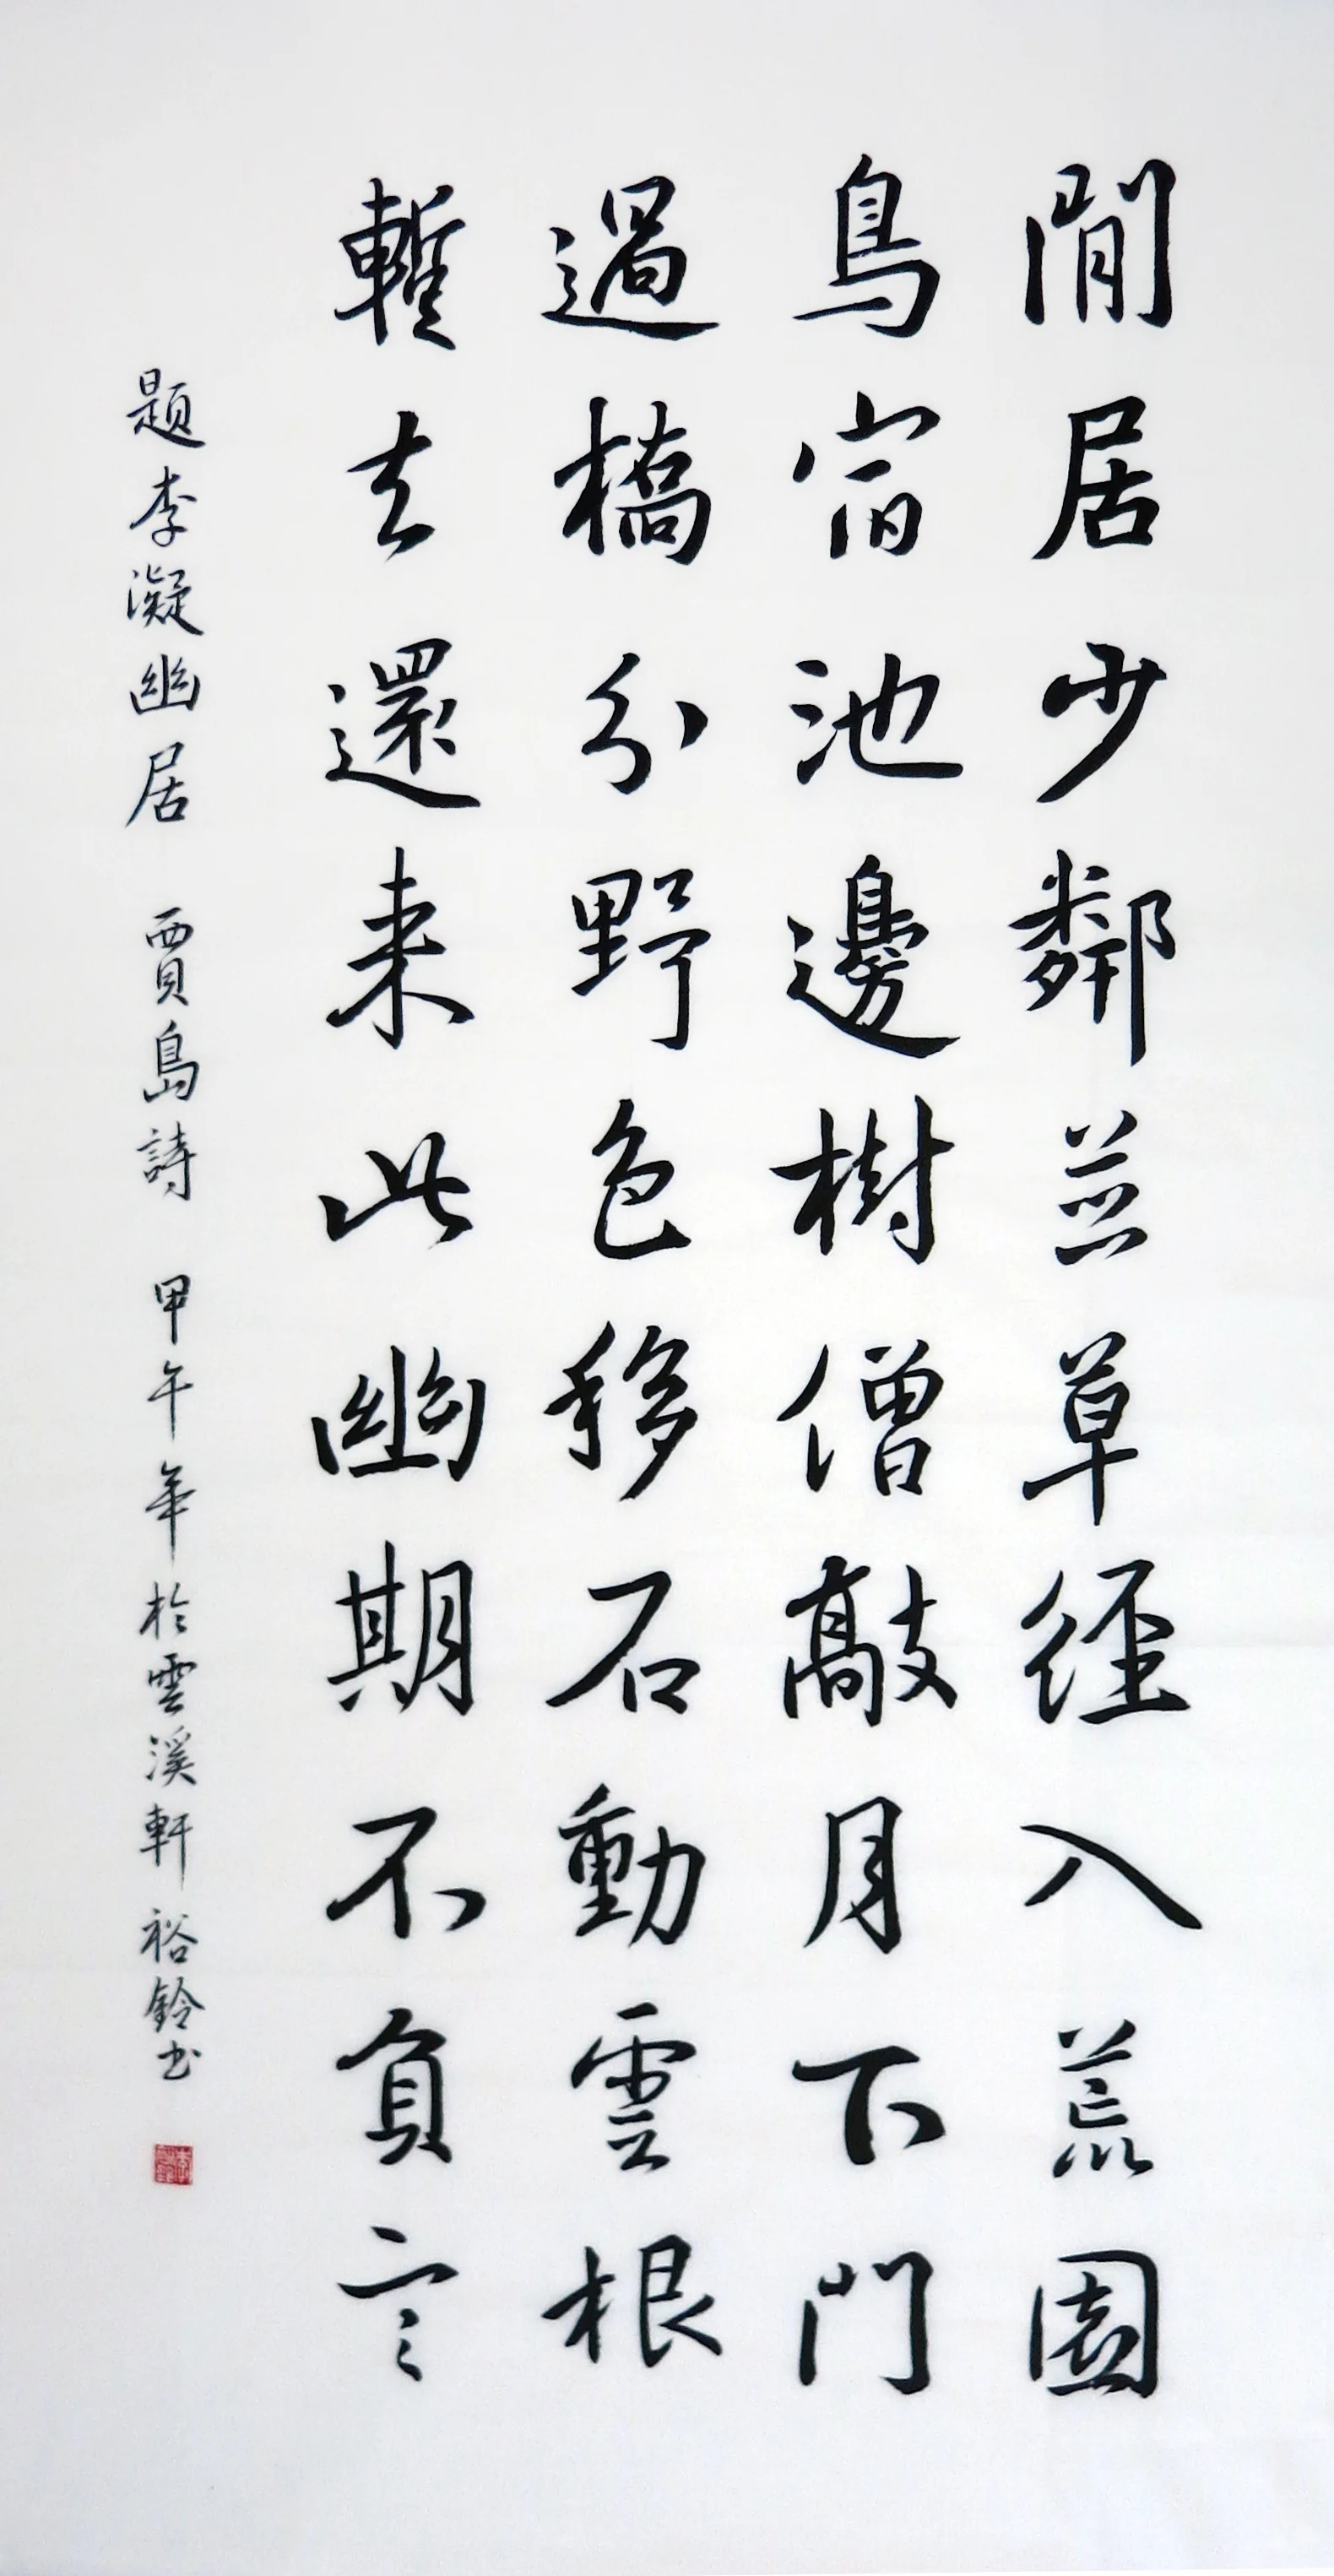 閒居少鄰並草徑入荒園
鳥宿池邊樹僧敲月下門
過橋分野色移石動雲根
蹔去還来此幽期不負言
題李凝幽居 賈島詩 甲午年於雲溪軒 裕鈴书